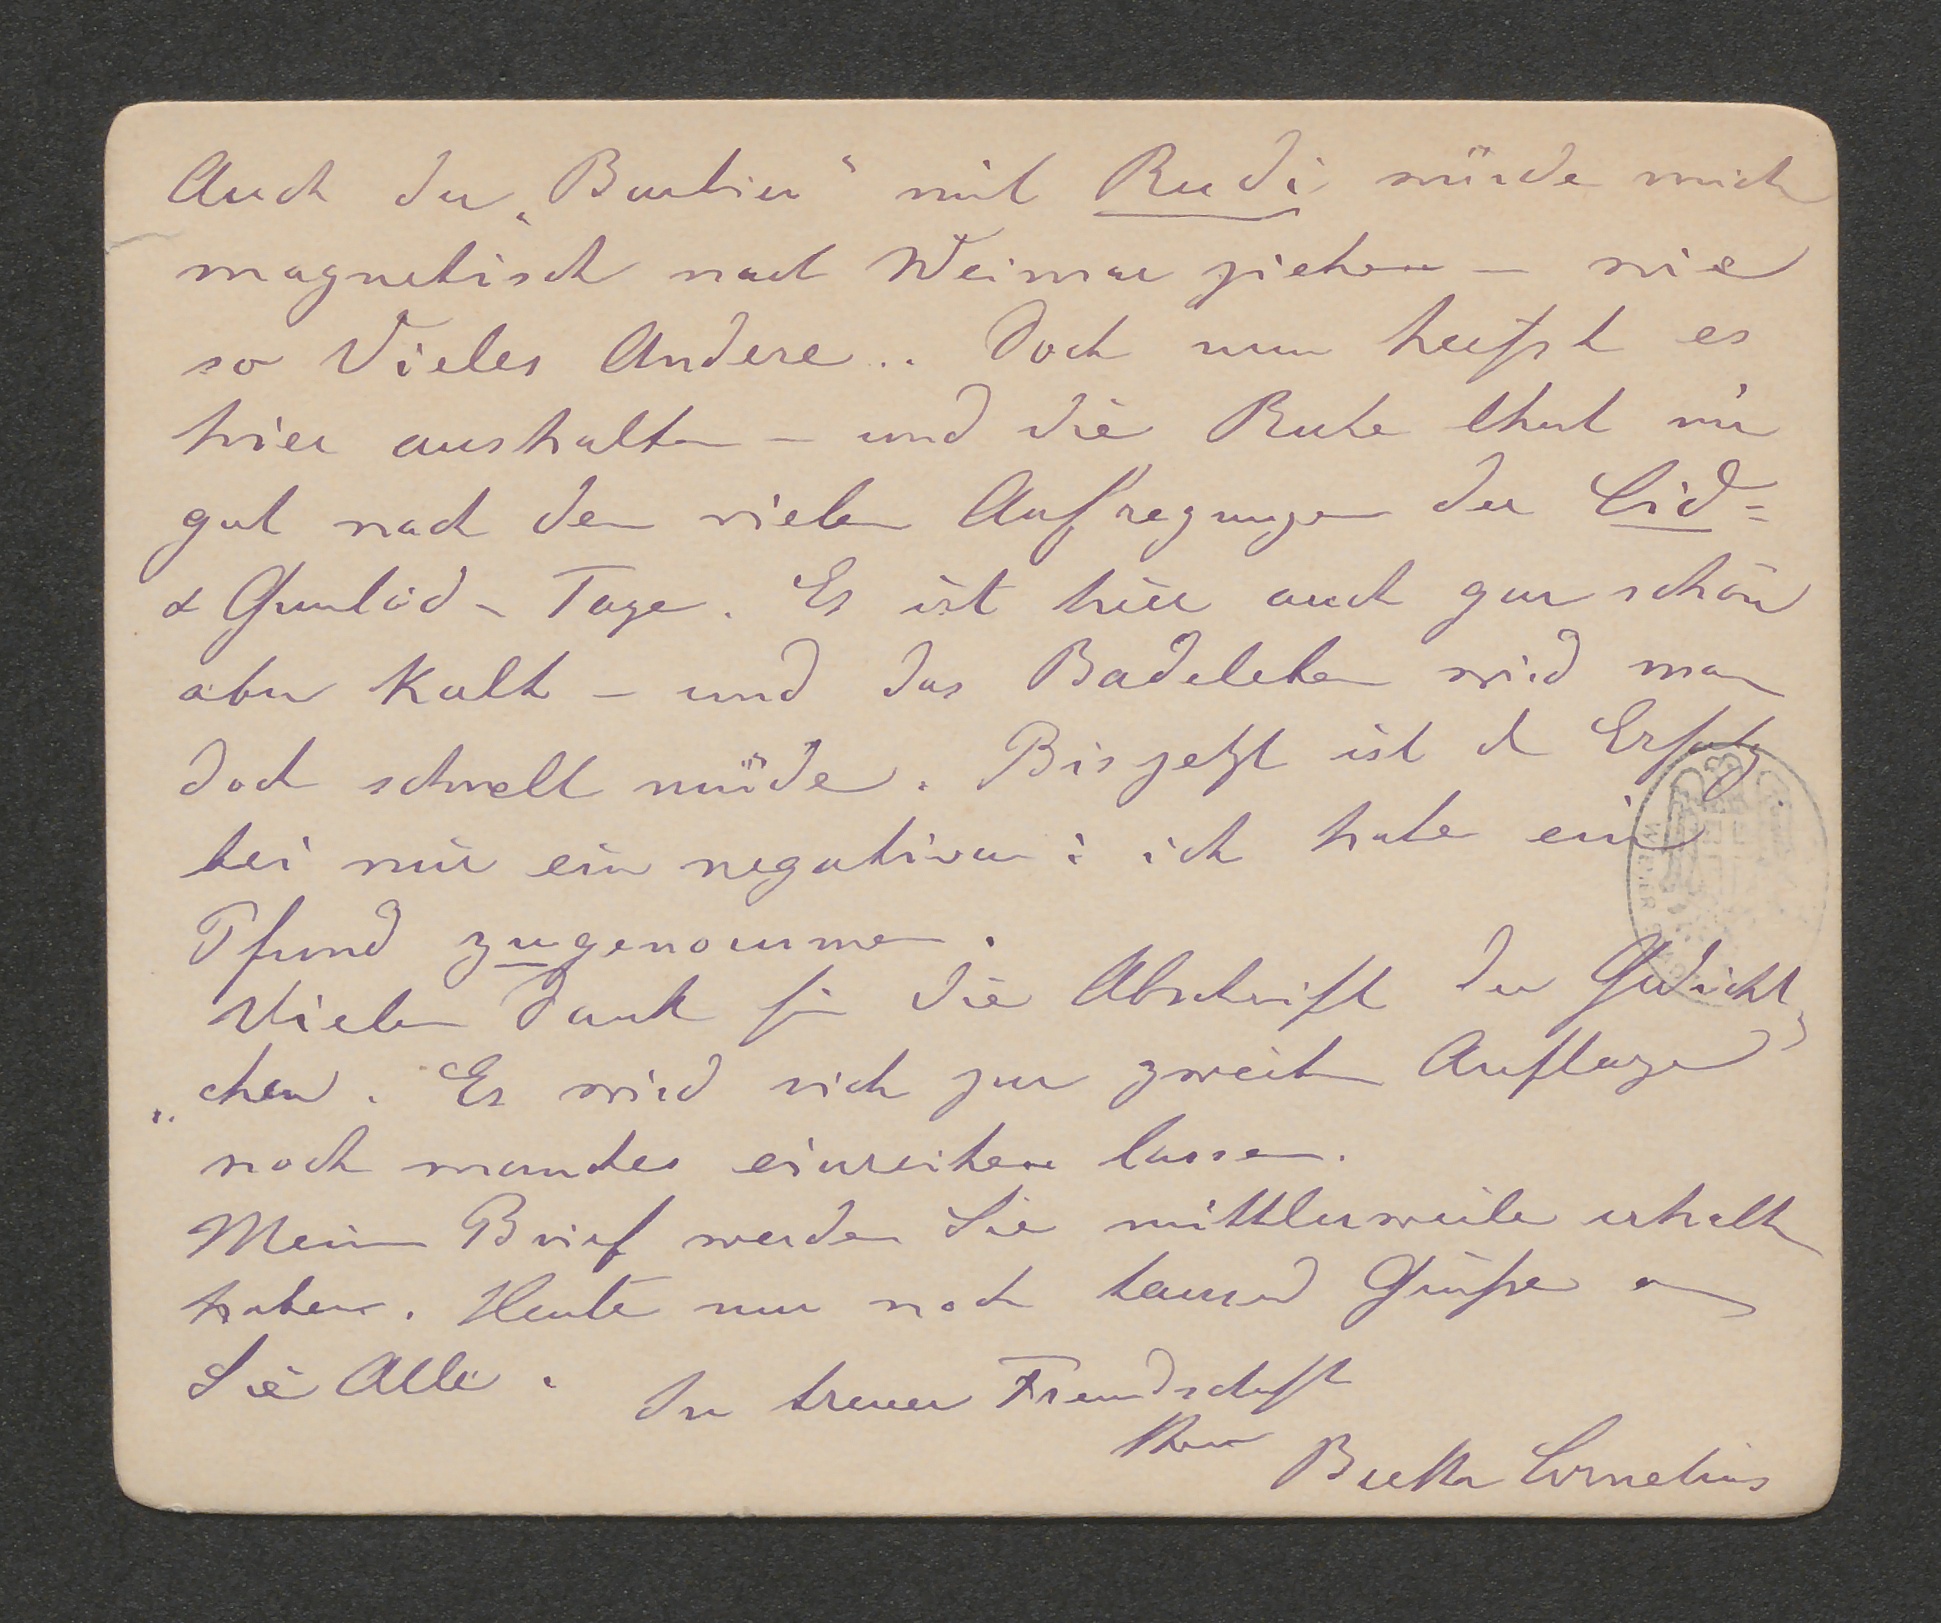 Auch der „Barbier“ mit Rudi würde mich
magnetisch nach Weimar ziehen – wie
so Vieles Andere .. Doch nun heißt es
hier aushalten – und die Ruhe thut mir
gut nach den vielen Aufregungen der Cid=
& Gunlöd – Tage. Es ist hier auch gar schön
aber kalt – und das Badeleben wird man
doch schnell müde. Bis jetzt ist d Erfolg
bei mir ein negativer: ich habe ein
Pfund zugenommen.
Vielen Dank für die Abschrift der Gedicht„
„chen. Es wird sich zur zweiten Auflage
noch manches einreihen lassen.
Meinen Brief werden Sie mittlerweile erhalten
haben. Heute nur noch tausend Grüße an
Sie Alle.
In treuer Freundschaft
Ihre
Bertha Cornelius